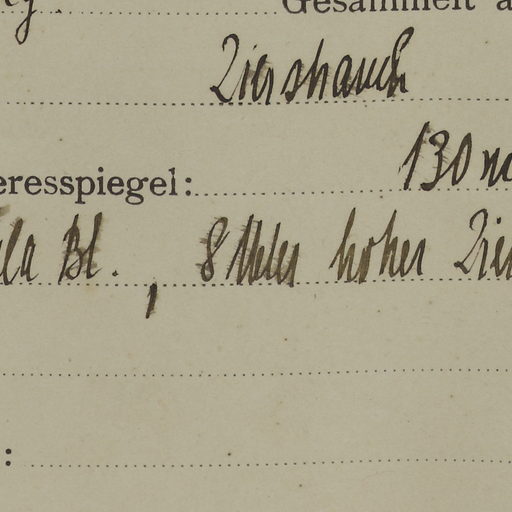 Gesammelt a
Zierstrauch
eresspiegel: 130 m
la Bl., 8 Meter hoher Zier
: